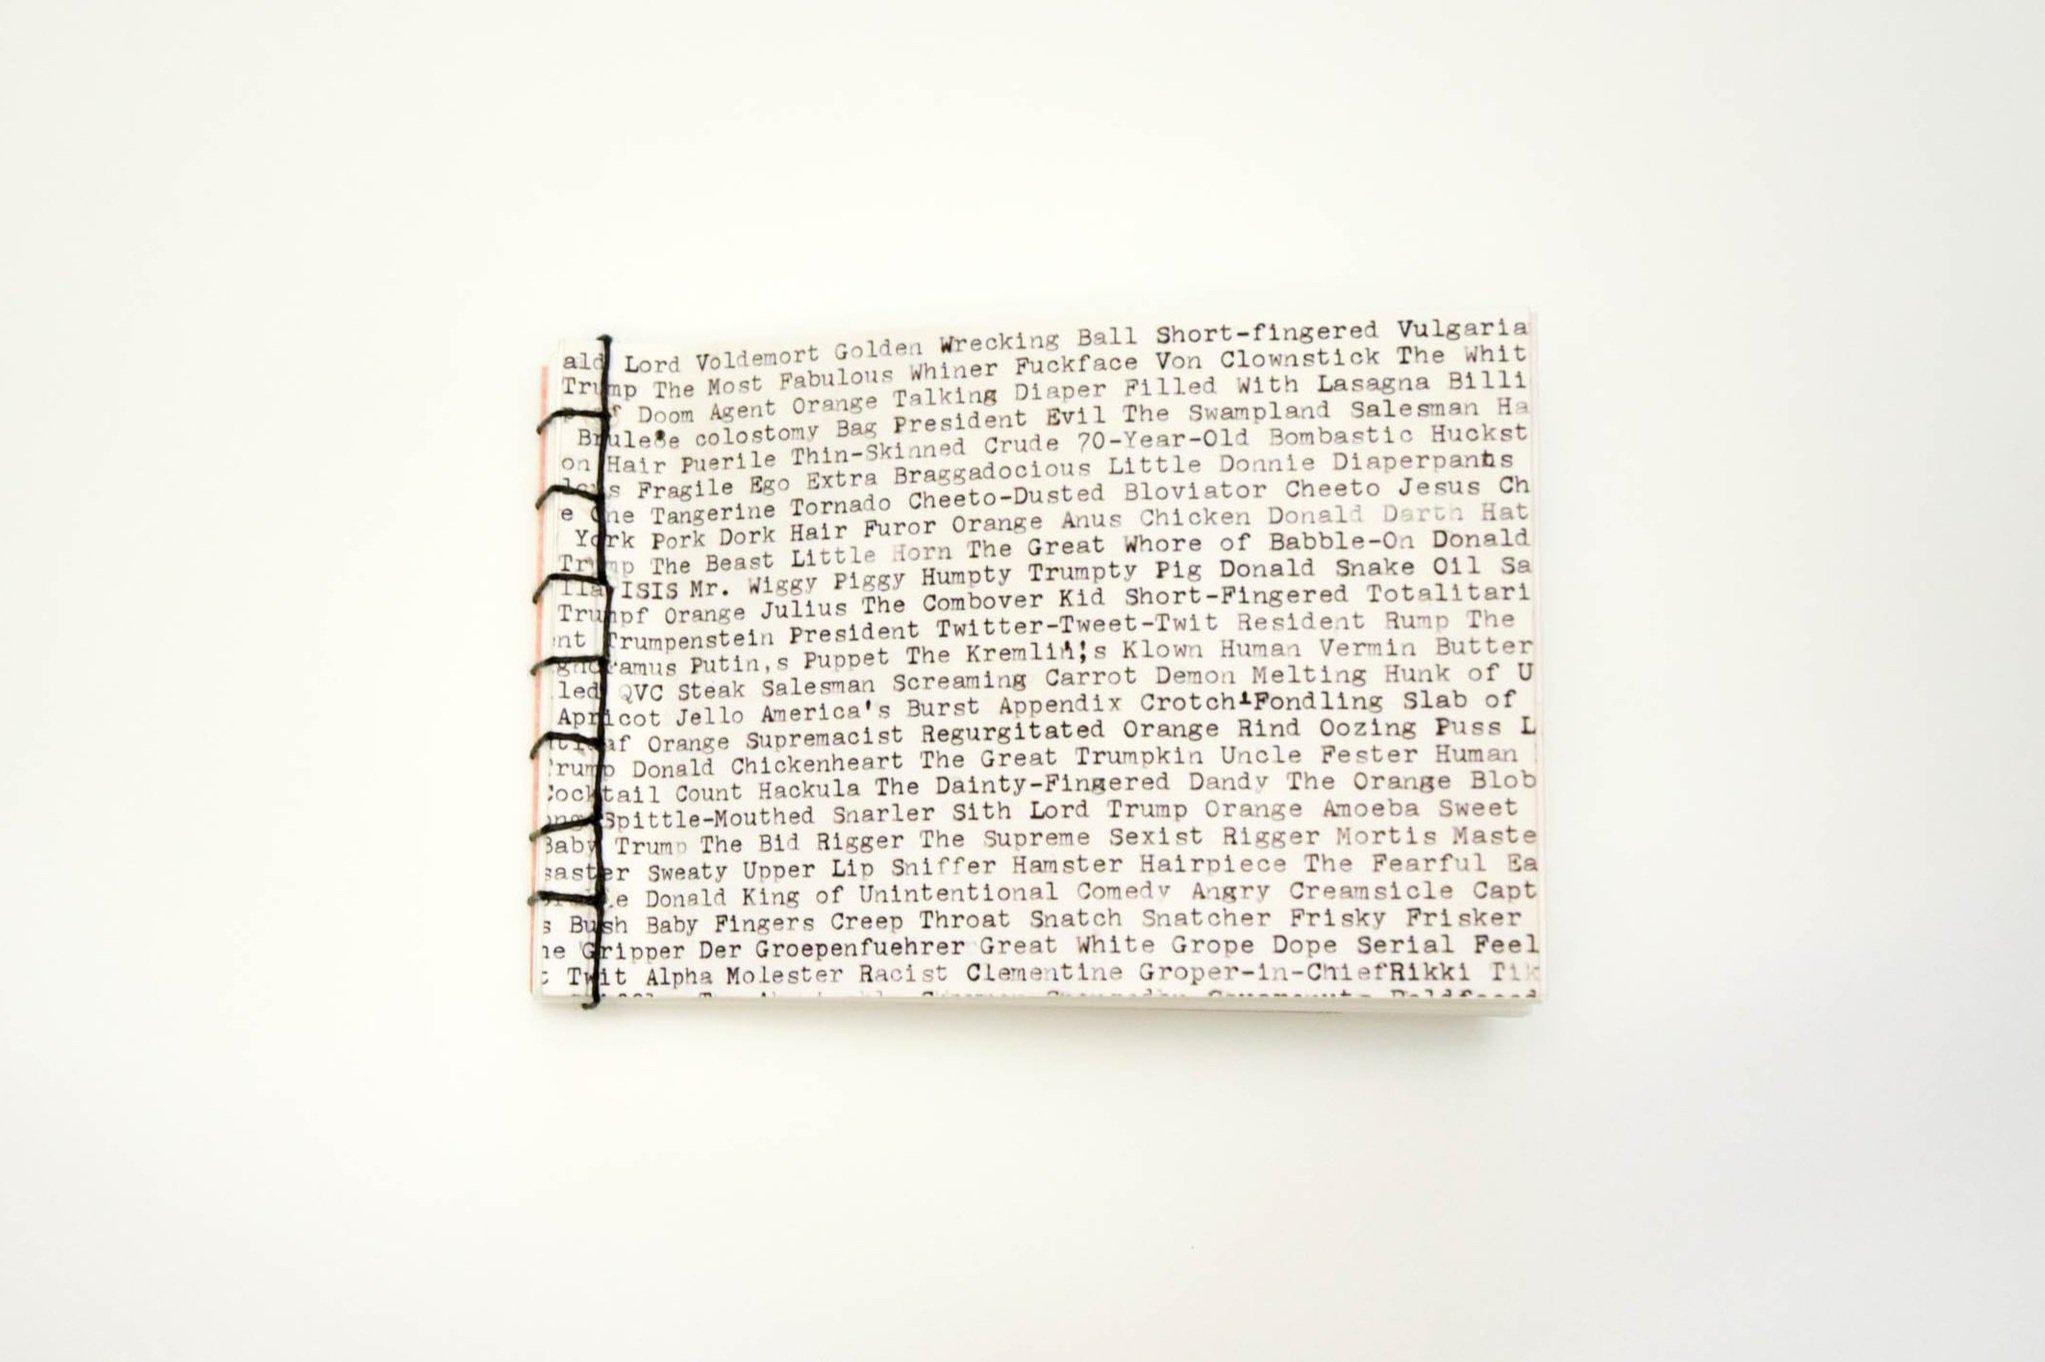 ald Lord Voldemort Golden Wrecking Ball Short-fingered Vulgaria
Trump The Most Fabulous Whiner Fuckface Von Clownstick The Whit
p of Doom Agent Orange Talking Diaper Filled With Lasagna Billi
Brulese colostomy Bag President Evil The Swampland Salesman Ha
on Hair Puerile Thin-Skinned Crude 70-Year-Old Bombastic Huckst
s Fragile Ego Extra Braggadocious Little Donnie Diaperpants
e One Tangerine Tornado Cheeto-Dusted Bloviator Cheeto Jesus Ch
York Pork Dork Hair Furor Orange Anus Chicken Donald Darth Hat
Trump The Beast Little Horn The Great Whore of Babble-On Donald
ISIS Mr. Wiggy Piggy Humpty Trumpty Pig Donald Snake Oil Sa
Trumpf Orange Julius The Combover Kid Short-Fingered Totalitari
nt Trumpenstein President Twitter-Tweet-Twit Resident Rump The
gnoramus Putin,s Puppet The Kremlin's Klown Human Vermin Butter
led QVC Steak Salesman Screaming Carrot Demon Melting Hunk of U
Apricot Jello America's Burst Appendix Crotch-Fondling Slab of
af Orange Supremacist Regurgitated Orange Rind Oozing Puss L
rump Donald Chickenheart The Great Trumpkin Uncle Fester Human
Cocktail Count Hackula The Dainty-Fingered Dandy The Orange Blob
Spittle-Mouthed Snarler Sith Lord Trump Orange Amoeba Sweet
Baby Trump The Bid Rigger The Supreme Sexist Rigger Mortis Maste
saster Sweaty Upper Lip Sniffer Hamster Hairpiece The Fearful Ea
le Donald King of Unintentional Comedy Angry Creamsicle Capt
s Bush Baby Fingers Creep Throat Snatch Snatcher Frisky Frisker
he Gripper Der Groepenfuehrer Great White Grope Dope Serial Feel
t Twit Alpha Molester Racist Clementine Groper-in-ChiefRikki Tik